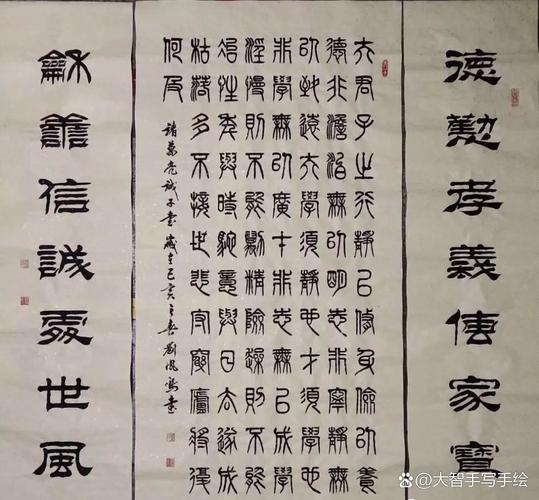 德懃孝義傳家寶
夫君子之行靜以修身儉以養
德非澹泊無以明志非寧靜無
以致遠夫學須靜也才須學也
非學無以廣才非志無以成學
淫慢則不能勵精險躁則不能
冶性年與時馳意與日去遂成
枯落多不接世悲守窮廬將復
何及
諸葛亮誡子書歲在己亥之春劉鳳書
龢譱信誠處世風
@大智手写手绘